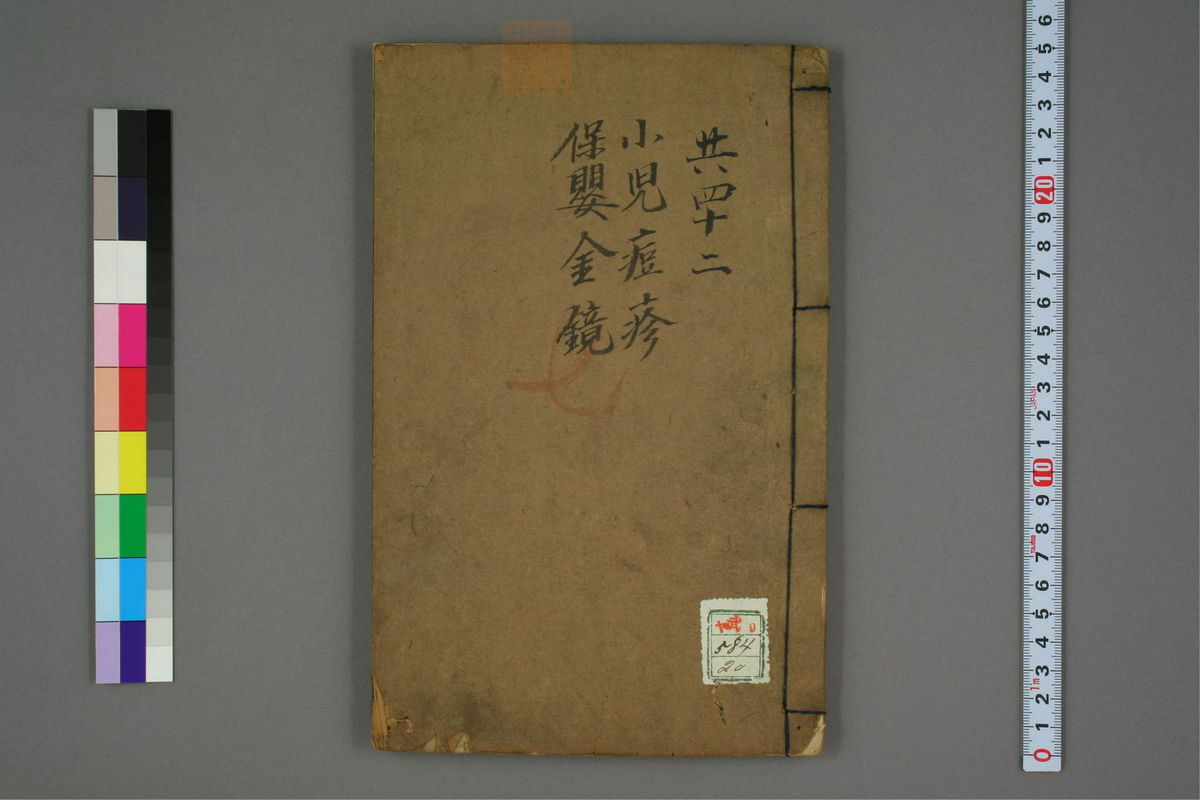 共四十二
小児痘疹
保嬰金鏡
七
9
584
20
6
5
4
3
2
1
20
9
8
7
6
5
4
3
2
1
10
9
8
7
6
5
4
3
2
1
0